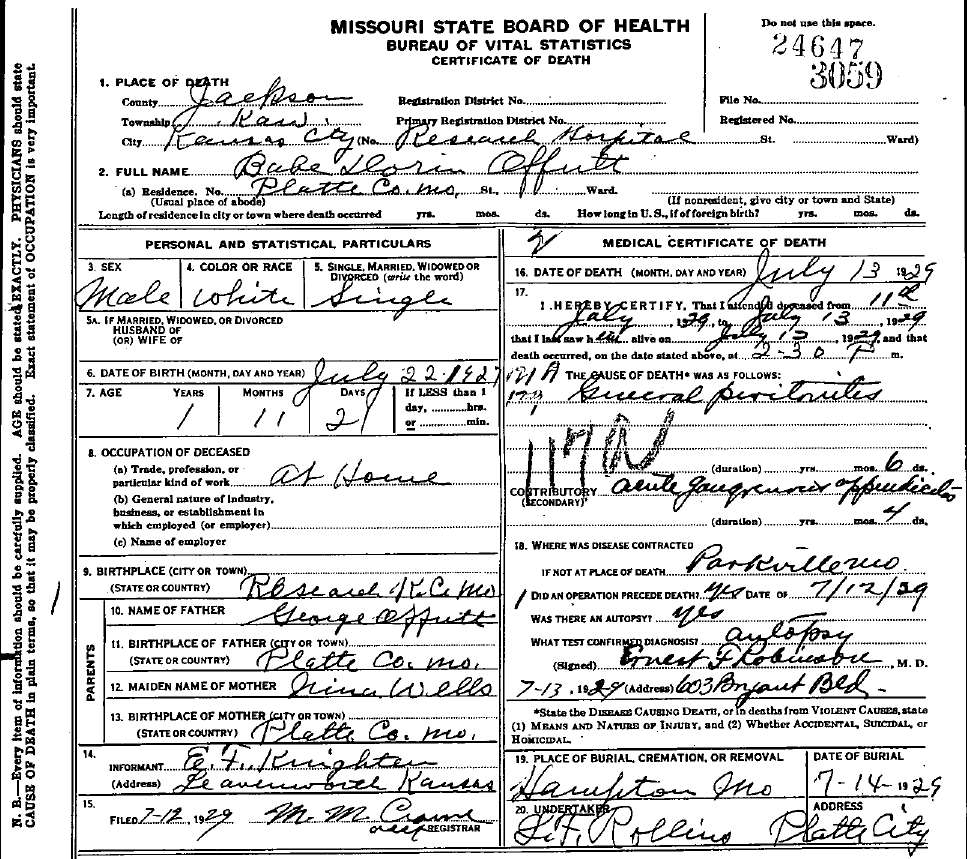 MISSOURI STATE BOARD OF HEALTH
BUREAU OF VITAL STATISTICS
CERTIFICATE OF DEATH
Do not use this space.
24647
3059
1. PLACE OF DEATH
County Jackson Registration District No. File No.
Township Kaw Primary Registration District No. Registered No.
City Kansas City (No. Research Hospital St. Ward)
2. FULL NAME Babe Dorin Offutt
(a) Residence. No. Platte Co. Mo, St., Ward.
(Usual place of abode) (If nonresident, give city or town and State)
Length of residence in city or town where death occurred yrs. mos. ds. How long in U. S., if of foreign birth? yrs. mos. ds.
PERSONAL AND STATISTICAL PARTICULARS
3. SEX 4. COLOR OR RACE 5. SINGLE, MARRIED, WIDOWED OR DIVORCED (write the word)
Male White Single
5A. IF MARRIED, WIDOWED, OR DIVORCED
HUSBAND OF
(OR) WIFE OF
6. DATE OF BIRTH (MONTH, DAY AND YEAR) July 22-1927
7. AGE YEARS MONTHS DAYS If LESS than 1
day, hrs.
or min.
1 11 21
8. OCCUPATION OF DECEASED
(a) Trade, profession, or
particular kind of work At Home
(b) General nature of industry,
business, or establishment in
which employed (or employer)
(c) Name of employer
9. BIRTHPLACE (CITY OR TOWN)
(STATE OR COUNTRY) Research K.C. Mo
PARENTS
10. NAME OF FATHER George Offutt
11. BIRTHPLACE OF FATHER (CITY OR TOWN)
(STATE OR COUNTRY) Platte Co. Mo.
12. MAIDEN NAME OF MOTHER Nina Wells
13. BIRTHPLACE OF MOTHER (CITY OR TOWN)
(STATE OR COUNTRY) Platte Co. Mo.
14.
INFORMANT E. F. Knighten
(Address) Leavenworth Kansas
15.
FILED 7-12, 1929 M. M. REGISTRAR
2 MEDICAL CERTIFICATE OF DEATH
16. DATE OF DEATH (MONTH, DAY AND YEAR) July 13 1929
17.
I HEREBY CERTIFY, That I attended deceased from 11th
July, 1929, to July 13, 1929
that I last saw him alive on July 13, 1929, and that
death occurred, on the date stated above, at 2-30 P m.
THE CAUSE OF DEATH* WAS AS FOLLOWS:
121A
General peritonitis
117
(duration) yrs. mos. 6 ds.
CONTRIBUTORY acute gangrenous appendicitis
(SECONDARY)
(duration) yrs. mos. 4 ds.
18. WHERE WAS DISEASE CONTRACTED
IF NOT AT PLACE OF DEATH Parkville Mo.
DID AN OPERATION PRECEDE DEATH? Yes DATE OF 7/12/29
WAS THERE AN AUTOPSY? Yes
WHAT TEST CONFIRMED DIAGNOSIS? autopsy
(Signed) Ernest F Robinson, M. D.
7-13, 1929 (Address) 603 Bryant Bld
*State the DISEASE CAUSING DEATH, or in deaths from VIOLENT CAUSES, state
(1) MEANS AND NATURE OF INJURY, and (2) Whether ACCIDENTAL, SUICIDAL, or
HOMICIDAL.
19. PLACE OF BURIAL, CREMATION, OR REMOVAL DATE OF BURIAL
Hampton Mo 7-14-1929
20. UNDERTAKER ADDRESS
Rollins Platte City
N. B.—Every item of information should be carefully supplied. AGE should be stated EXACTLY. PHYSICIANS should state
CAUSE OF DEATH in plain terms, so that it may be properly classified. Exact statement of OCCUPATION is very important.